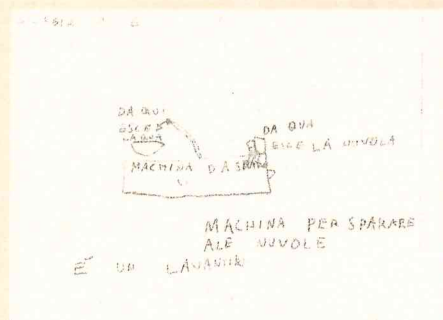 DA QUI
ESCE
LAQUA
DA QUA
ESCE LA NUVOLA
MACHINA DA SPARE
MACHINA PER SPARARE
ALE NUVOLE
È UN